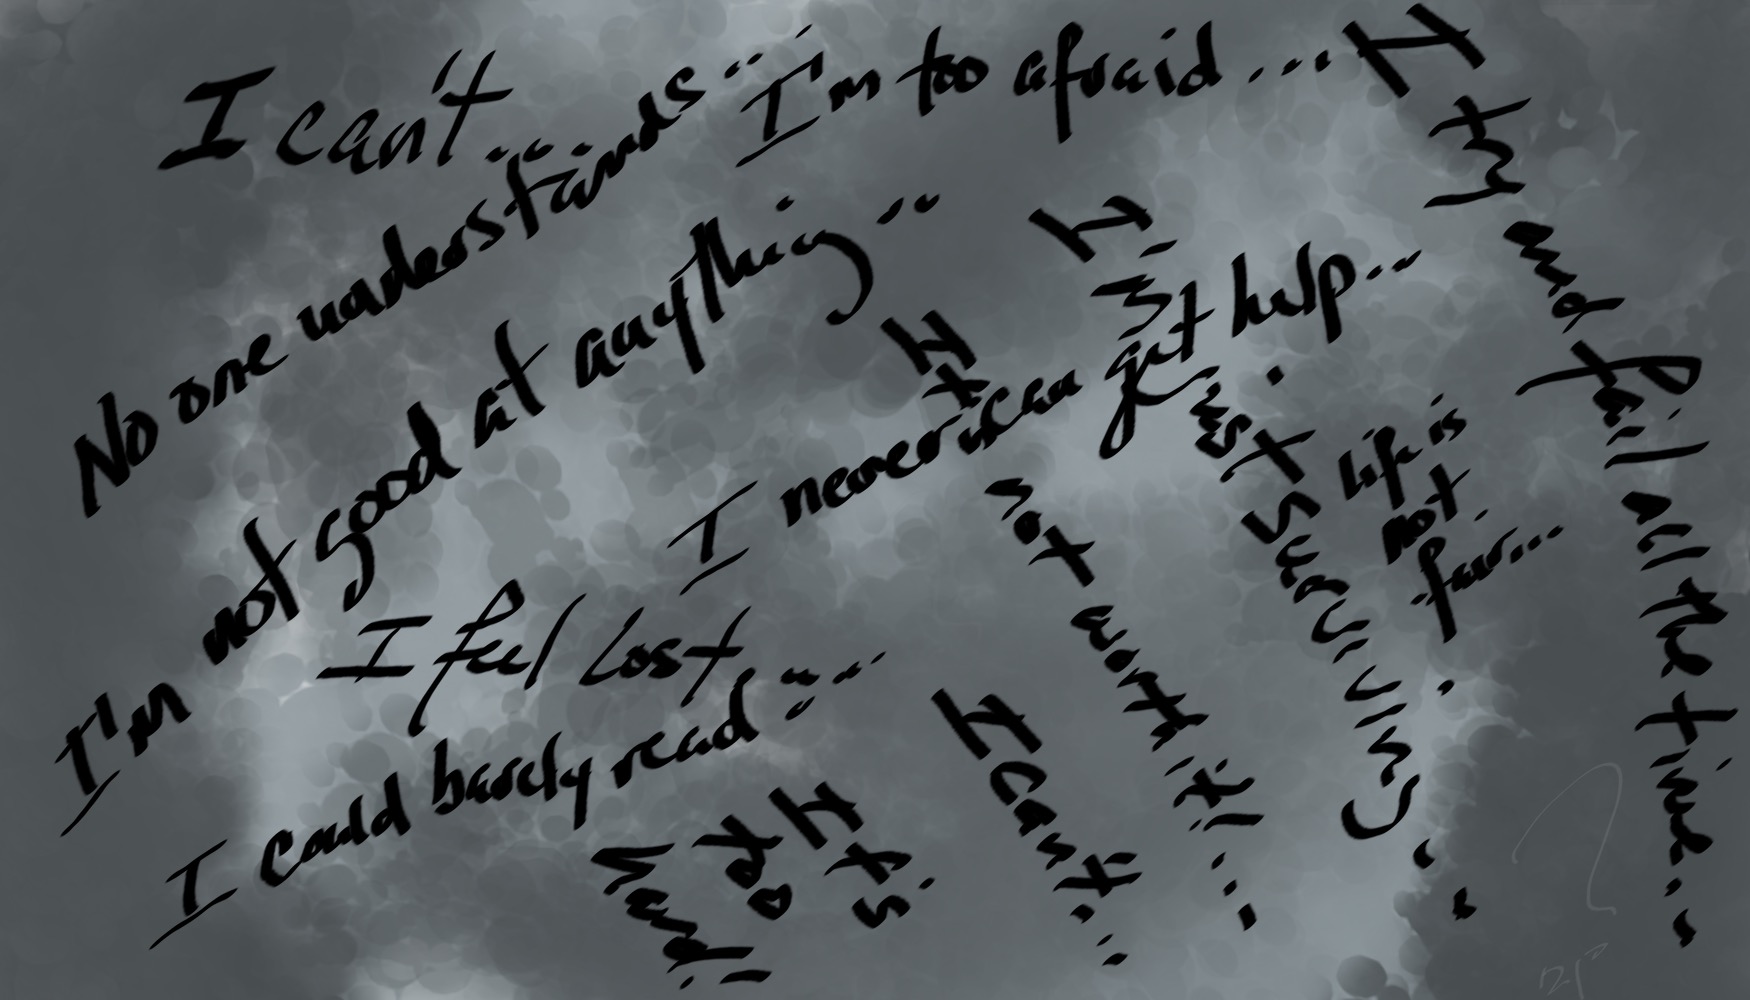 I can't...
No one understands...
I'm too afraid...
I try and fail all the time...
I'm not good at anything...
I never can get help...
I'm just surviving...
It's not worth it!...
Life is
not
fair...
I feel lost...
I could barely read...
It's
too
hard!
I can't...